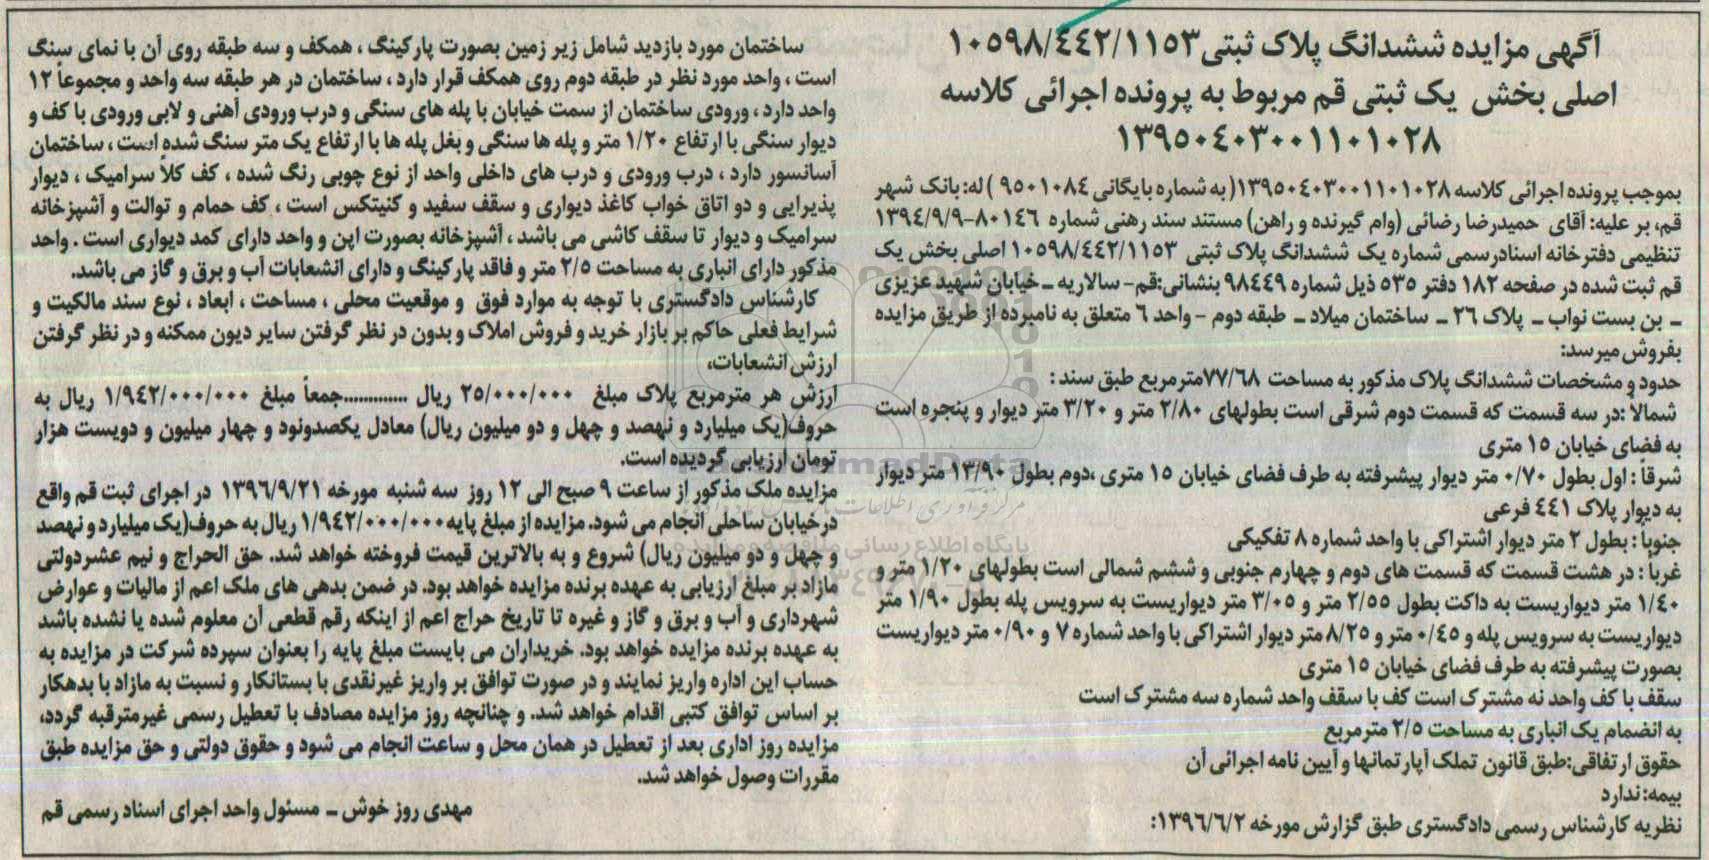 آگهی مزایده ششدانگ پلاک ثبتی ۱۰۵۹۸/۴۴۲/۱۱۵۳
اصلی بخش یک ثبتی قم مربوط به پرونده اجرائی کلاسه
۱۳۹۵۰۴۰۳۰۰۱۱۰۱۰۲۸
بموجب پرونده اجرائی کلاسه ۱۳۹۵۰۴۰۳۰۰۱۱۰۱۰۲۸( به شماره بایگانی ۹۵۰۱۰۸۴ ) له: بانک شهر
قم، بر علیه: آقای حمیدرضا رضائی (وام گیرنده و راهن) مستند سند رهنی شماره ۸۰۱۴۶-۱۳۹۴/۹/۹
تنظیمی دفترخانه اسنادرسمی شماره یک ششدانگ پلاک ثبتی ۱۰۵۹۸/۴۴۲/۱۱۵۳ اصلی بخش یک
قم ثبت شده در صفحه ۱۸۲ دفتر ۵۳۵ ذیل شماره ۹۸۴۴۹ بنشانی:قم- سالاریه ـ خیابان شهید عزیزی
ـ بن بست نواب ـ پلاک ۲۶ ـ ساختمان میلاد ـ طبقه دوم - واحد ۶ متعلق به نامبرده از طریق مزایده
بفروش میرسد:
حدود و مشخصات ششدانگ پلاک مذکور به مساحت ۷۷/۶۸مترمربع طبق سند :
شمالاً :در سه قسمت که قسمت دوم شرقی است بطولهای ۲/۸۰ متر و ۳/۲۰ متر دیوار و پنجره است
به فضای خیابان ۱۵ متری
شرقاً : اول بطول ۰/۷۰ متر دیوار پیشرفته به طرف فضای خیابان ۱۵ متری ،دوم بطول ۱۳/۹۰ متر دیوار
به دیوار پلاک ۴۴۱ فرعی
جنوباً : بطول ۲ متر دیوار اشتراکی با واحد شماره ۸ تفکیکی
غرباً : در هشت قسمت که قسمت های دوم و چهارم جنوبی و ششم شمالی است بطولهای ۱/۲۰ متر و
۱/۴۰ متر دیواریست به داکت بطول ۲/۵۵ متر و ۳/۰۵ متر دیواریست به سرویس پله بطول ۱/۹۰ متر
دیواریست به سرویس پله و ۰/۴۵ متر و ۸/۲۵ متر دیوار اشتراکی با واحد شماره ۷ و ۰/۹۰ متر دیواریست
بصورت پیشرفته به طرف فضای خیابان ۱۵ متری
سقف با کف واحد نه مشترک است کف با سقف واحد شماره سه مشترک است
به انضمام یک انباری به مساحت ۲/۵ مترمربع
حقوق ارتفاقی:طبق قانون تملک آپارتمانها و آیین نامه اجرائی آن
بیمه: ندارد
نظریه کارشناس رسمی دادگستری طبق گزارش مورخه ۱۳۹۶/۶/۲:
ساختمان مورد بازدید شامل زیر زمین بصورت پارکینگ ، همکف و سه طبقه روی آن با نمای سنگ
است ، واحد مورد نظر در طبقه دوم روی همکف قرار دارد ، ساختمان در هر طبقه سه واحد و مجموعاً ۱۲
واحد دارد ، ورودی ساختمان از سمت خیابان با پله های سنگی و درب ورودی آهنی و لابی ورودی با کف و
دیوار سنگی با ارتفاع ۱/۲۰ متر و پله ها سنگی و بغل پله ها با ارتفاع یک متر سنگ شده است ، ساختمان
آسانسور دارد ، درب ورودی و درب های داخلی واحد از نوع چوبی رنگ شده ، کف کلاً سرامیک ، دیوار
پذیرایی و دو اتاق خواب کاغذ دیواری و سقف سفید و کنیتکس است ، کف حمام و توالت و آشپزخانه
سرامیک و دیوار تا سقف کاشی می باشد ، آشپزخانه بصورت اپن و واحد دارای کمد دیواری است . واحد
مذکور دارای انباری به مساحت ۲/۵ متر و فاقد پارکینگ و دارای انشعابات آب و برق و گاز می باشد.
کارشناس دادگستری با توجه به موارد فوق و موقعیت محلی ، مساحت ، ابعاد ، نوع سند مالکیت و
شرایط فعلی حاکم بر بازار خرید و فروش املاک و بدون در نظر گرفتن سایر دیون ممکنه و در نظر گرفتن
ارزش انشعابات،
ارزش هر مترمربع پلاک مبلغ ۲۵/۰۰۰/۰۰۰ ریال ............جمعاً مبلغ ۱/۹۴۲/۰۰۰/۰۰۰ ریال به
حروف(یک میلیارد و نهصد و چهل و دو میلیون ریال) معادل یکصدونود و چهار میلیون و دویست هزار
تومان ارزیابی گردیده است.
مزایده ملک مذکور از ساعت ۹ صبح الی ۱۲ روز سه شنبه مورخه ۱۳۹۶/۹/۲۱ در اجرای ثبت قم واقع
درخیابان ساحلی انجام می شود. مزایده از مبلغ پایه ۱/۹۴۲/۰۰۰/۰۰۰ ریال به حروف(یک میلیارد و نهصد
و چهل و دو میلیون ریال) شروع و به بالاترین قیمت فروخته خواهد شد. حق الحراج و نیم عشردولتی
مازاد بر مبلغ ارزیابی به عهده برنده مزایده خواهد بود. در ضمن بدهی های ملک اعم از مالیات و عوارض
شهرداری و آب و برق و گاز و غیره تا تاریخ حراج اعم از اینکه رقم قطعی آن معلوم شده یا نشده باشد
به عهده برنده مزایده خواهد بود. خریداران می بایست مبلغ پایه را بعنوان سپرده شرکت در مزایده به
حساب این اداره واریز نمایند و در صورت توافق بر واریز غیرنقدی با بستانکار و نسبت به مازاد با بدهکار
بر اساس توافق کتبی اقدام خواهد شد. و چنانچه روز مزایده مصادف با تعطیل رسمی غیرمترقبه گردد،
مزایده روز اداری بعد از تعطیل در همان محل و ساعت انجام می شود و حقوق دولتی و حق مزایده طبق
مقررات وصول خواهد شد.
مهدی روز خوش ـ مسئول واحد اجرای اسناد رسمی قم